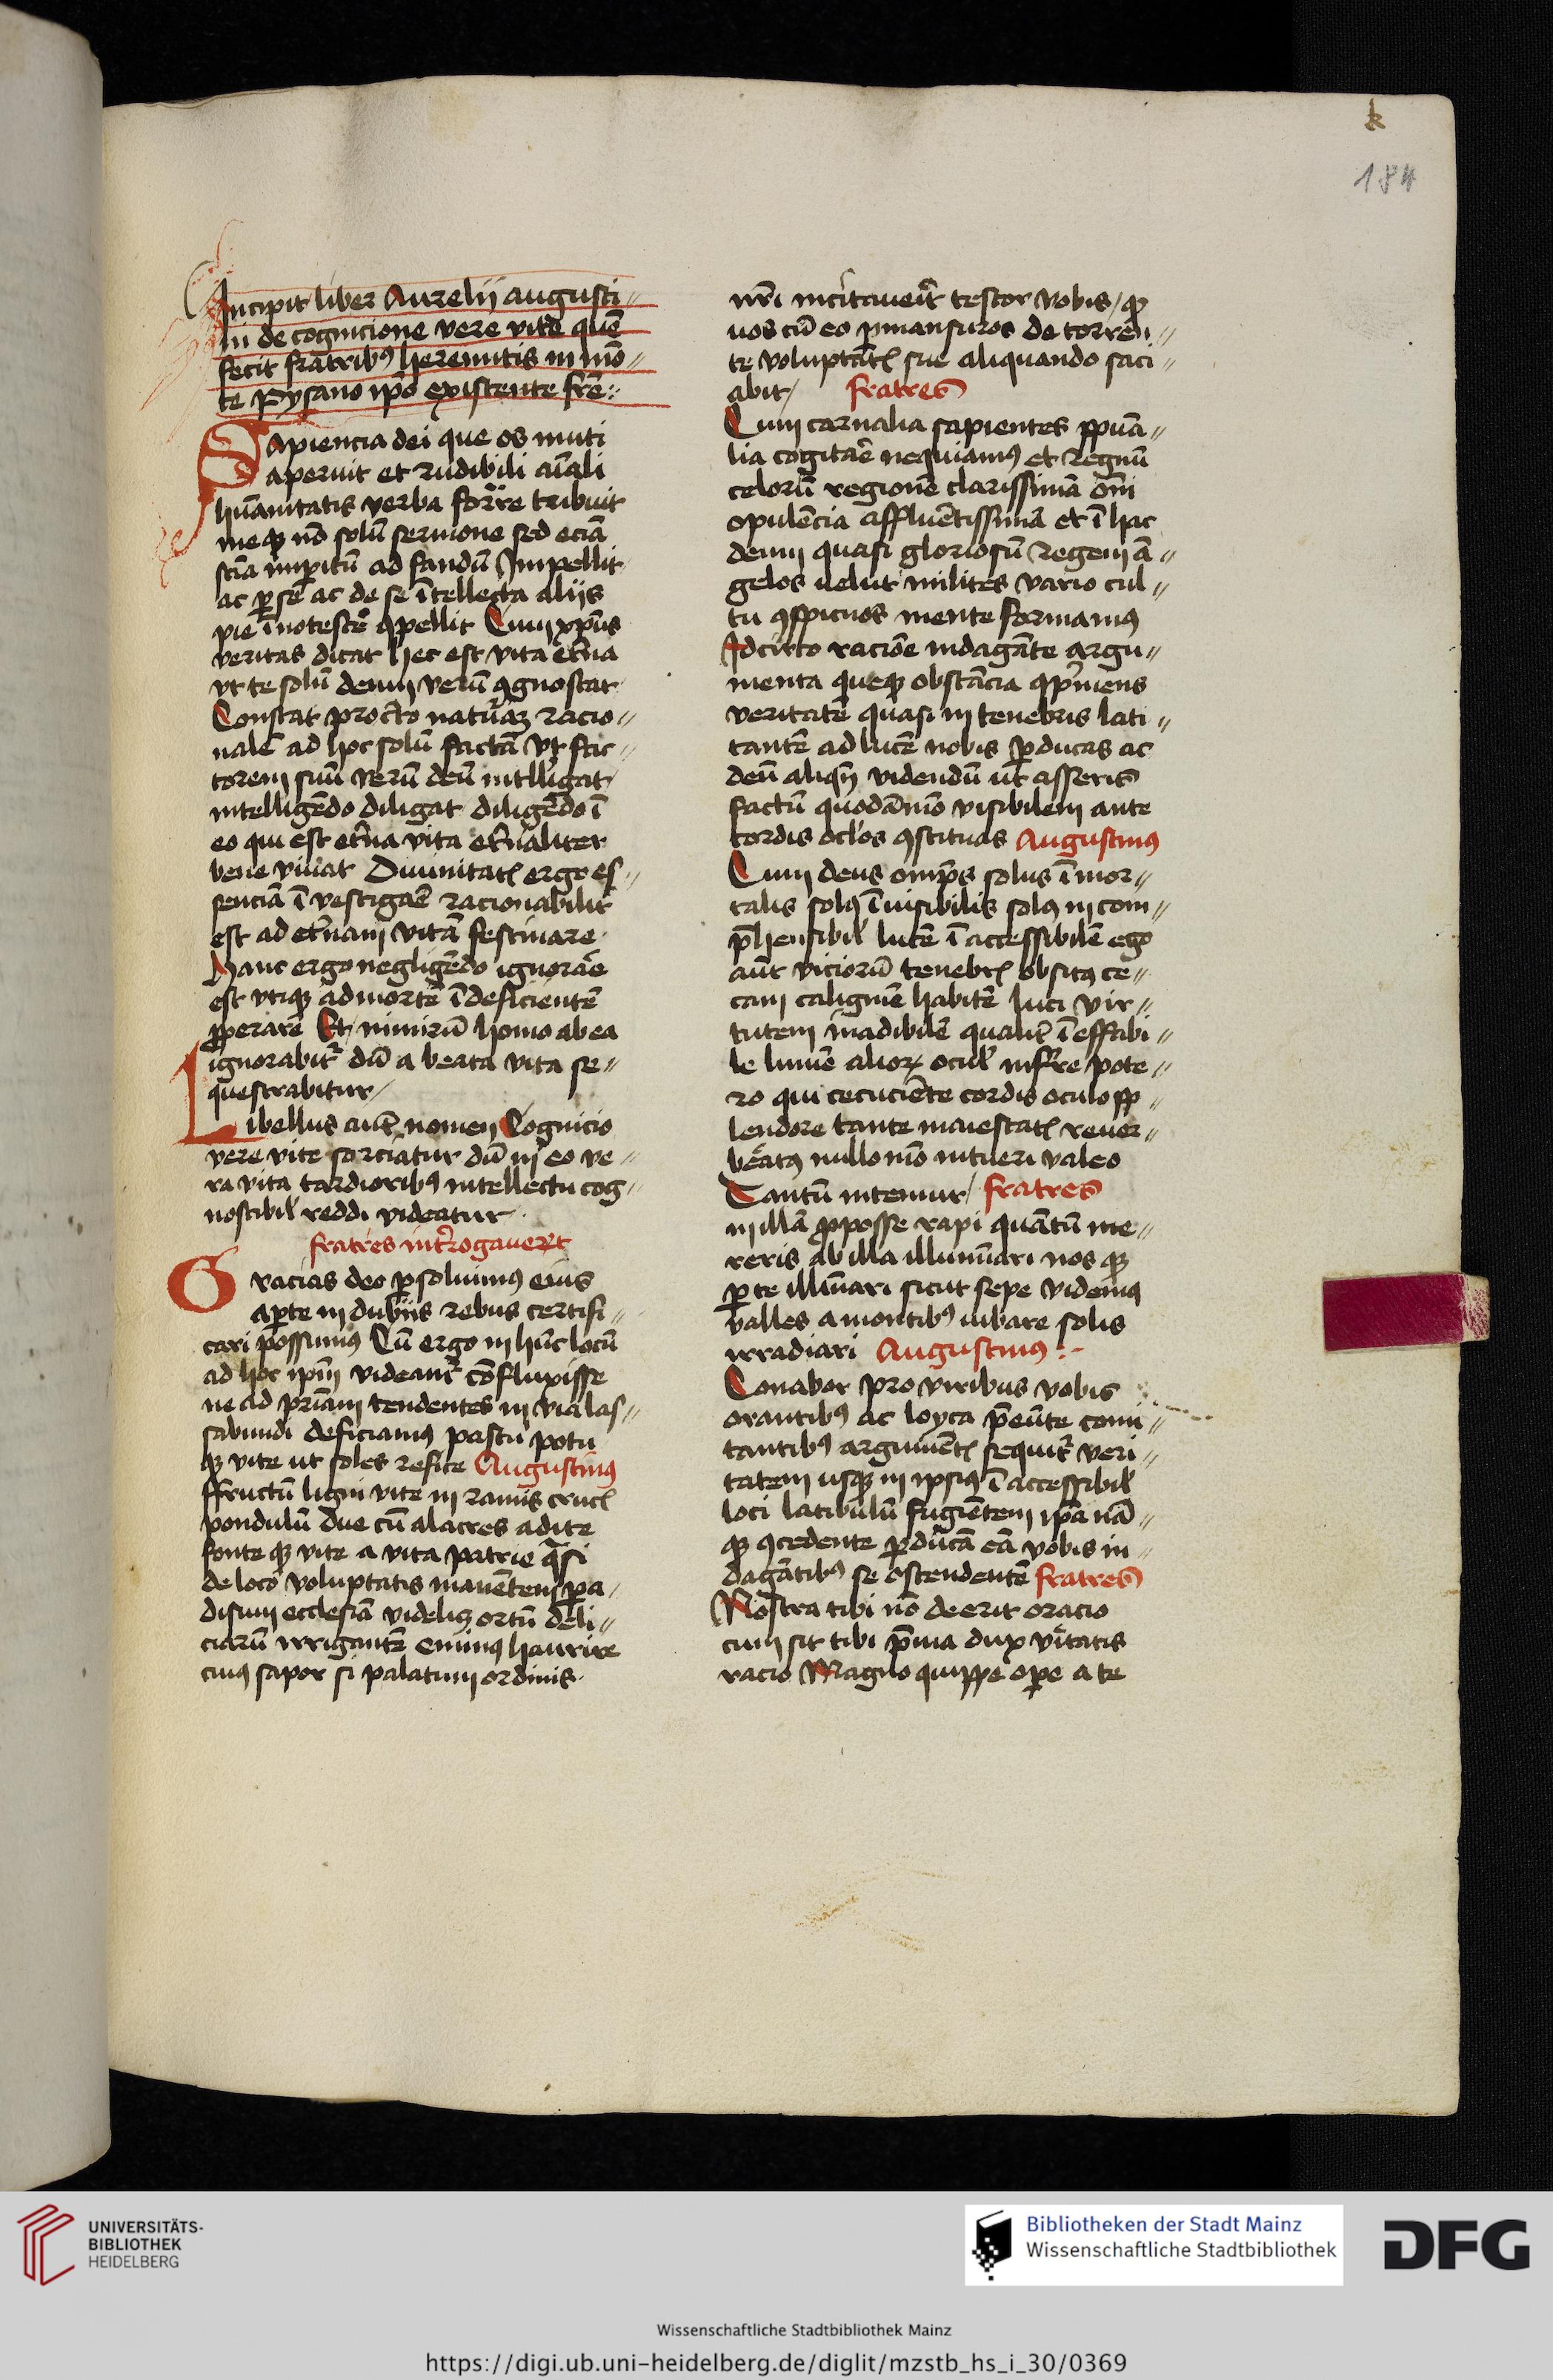 k
184
Incipit liber Aurelij augusti⸗
ni de cognicione vere vite quē
fecit fratribꝰ heremitis in mō⸗
te Pysano ip̄o existente frē
Sapiencia dei que os muti
aperuit et rudibili aīali
hūanitatis verba fore tribuit
meqꝫ nō solū sermone sed eciā
scīa imperitū ad fandū Impellit
ac ꝑ se ac de se ītellecta aliis
pie īnotescere ꝯpellit Cum xp̄us
veritas dicat hec est vita et̄na
vt te solū deum verū ꝯgnoscat
Constat profcō naturāꝫ racio⸗
nalē ad hoc solū factā vt fac⸗
torem suū verū deū intlligat
intelligēdo diligat diligēdo ī
eo qui est et̄na vita et̄naliter
bene viuat Diuinitatꝭ ergo es⸗
senciā ī vestigare racionabilit̄
est ad et̄nam vitā festinare
Hanc ergo negligēdo ignorare
est vtiqꝫ ad mortē īdeficientē
ꝓperare Et nimirū homo ab ea
ignorabit᷑ dū a beata vita se⸗
questrabitur
Libellus aut̄ nomen Cognicio
vere vite sorciatur dū in eo ve⸗
ra vita tardioribꝰ intellectu cog⸗
noscibil̕ reddi videatur
fratres int̄rogauert
Gracias deo ꝑsoluimꝰ eius
a ꝑte in dubijs rebus certifi⸗
cari possumꝰ Cū ergo in hūc locū
ad hoc ip̄m videam᷑ cōfluxisse
ne ad pr̄iam tendentes in via las⸗
sabundi deficiamꝰ pastu potu
qꝫ vite ut soles refice Augustinꝰ
ffructū ligni vite in ramis crucꝭ
pondulū due cū alacres adite
fonte qꝫ vite a vita patrie qͣsi
de loco voluptatis manētem pa⸗
disum ecclesiā videliꝫ ortū deli⸗
ciarū irrigantē eminꝰ haurire
cuiꝰ sapor si palatum ordinis
nr̄i incitauerit testor vobis qꝫ
uos cū eo ꝑmansuros de torren⸗
te voluptatꝭ sue aliquando saci⸗
abit fratres
Cum carnalia sapientes spūa⸗
lia cogitare nequiamꝰ et regnū
celorū regionē clarissimā om̄i
opulēcia affluētissimā et ī hac
deum quasi gloriosū regem ā⸗
gelos uelut milites vario cul⸗
tu ꝯspicuos mente formamꝰ
Idcirco racōe indagāte argu⸗
menta queqꝫ obstācia ꝯpͥmens
veritatē quasi in tenebris lati⸗
tantē ad lucē nobis ꝓducas ac
deū aliqn̄ videndū ut asseris
factū quodāmō visibilem ante
cordis oclōs ꝯstituas Augustinꝰ
Cum deus omīp̄s solus īmor⸗
talis solꝰ īuisibilis solꝰ in com⸗
p̄hensibil̕ lucē īaccessibilē ego
aūt viciorū tenebrꝭ obsitꝰ ce⸗
cam caliginē habitē luci vir⸗
tutem inadibilē qualit̄ īeffabi⸗
le lumē alioꝝ ocul̕ inferre pote⸗
ro qui cecuciēte cordis oculo sp⸗
lendore tante maiestatꝭ reuer⸗
beratꝰ nullo mō intueri valeo
Tantū intemur fratres
in illā ꝓ posse rapi quātū me⸗
reris ab illa illuminari nos qꝫ
ꝑ te illūīari sicut sepe videmꝰ
valles a montibꝰ iubare solis
irradiari Augustinꝰ
Conabor pro viribus vobis
orantibꝰ ac loyca p̄eūte comi⸗
tantibꝰ argumētꝭ sequit᷑ veri⸗
tatem usqꝫ in ipsiꝰ īaccessibil̕
loci latibulū fugiētem ip̄a nā⸗
qꝫ ꝯcedente ꝓducā eā vobis in⸗
dagātibꝰ se ostendentē fratres
Nostra tibi nō deerit oracio
cum sit tibi p̄uia dux vītatis
racio Magno quippe oꝑe a te
UNIVERSITÄTS-
BIBLIOTHEK
HEIDELBERG
Bibliotheken der Stadt Mainz
Wissenschaftliche Stadtbibliothek
DFG
Wissenschaftliche Stadtbibliothek Mainz
https://digi.ub.uni-heidelberg.de/diglit/mzstb_hs_i_30/0369